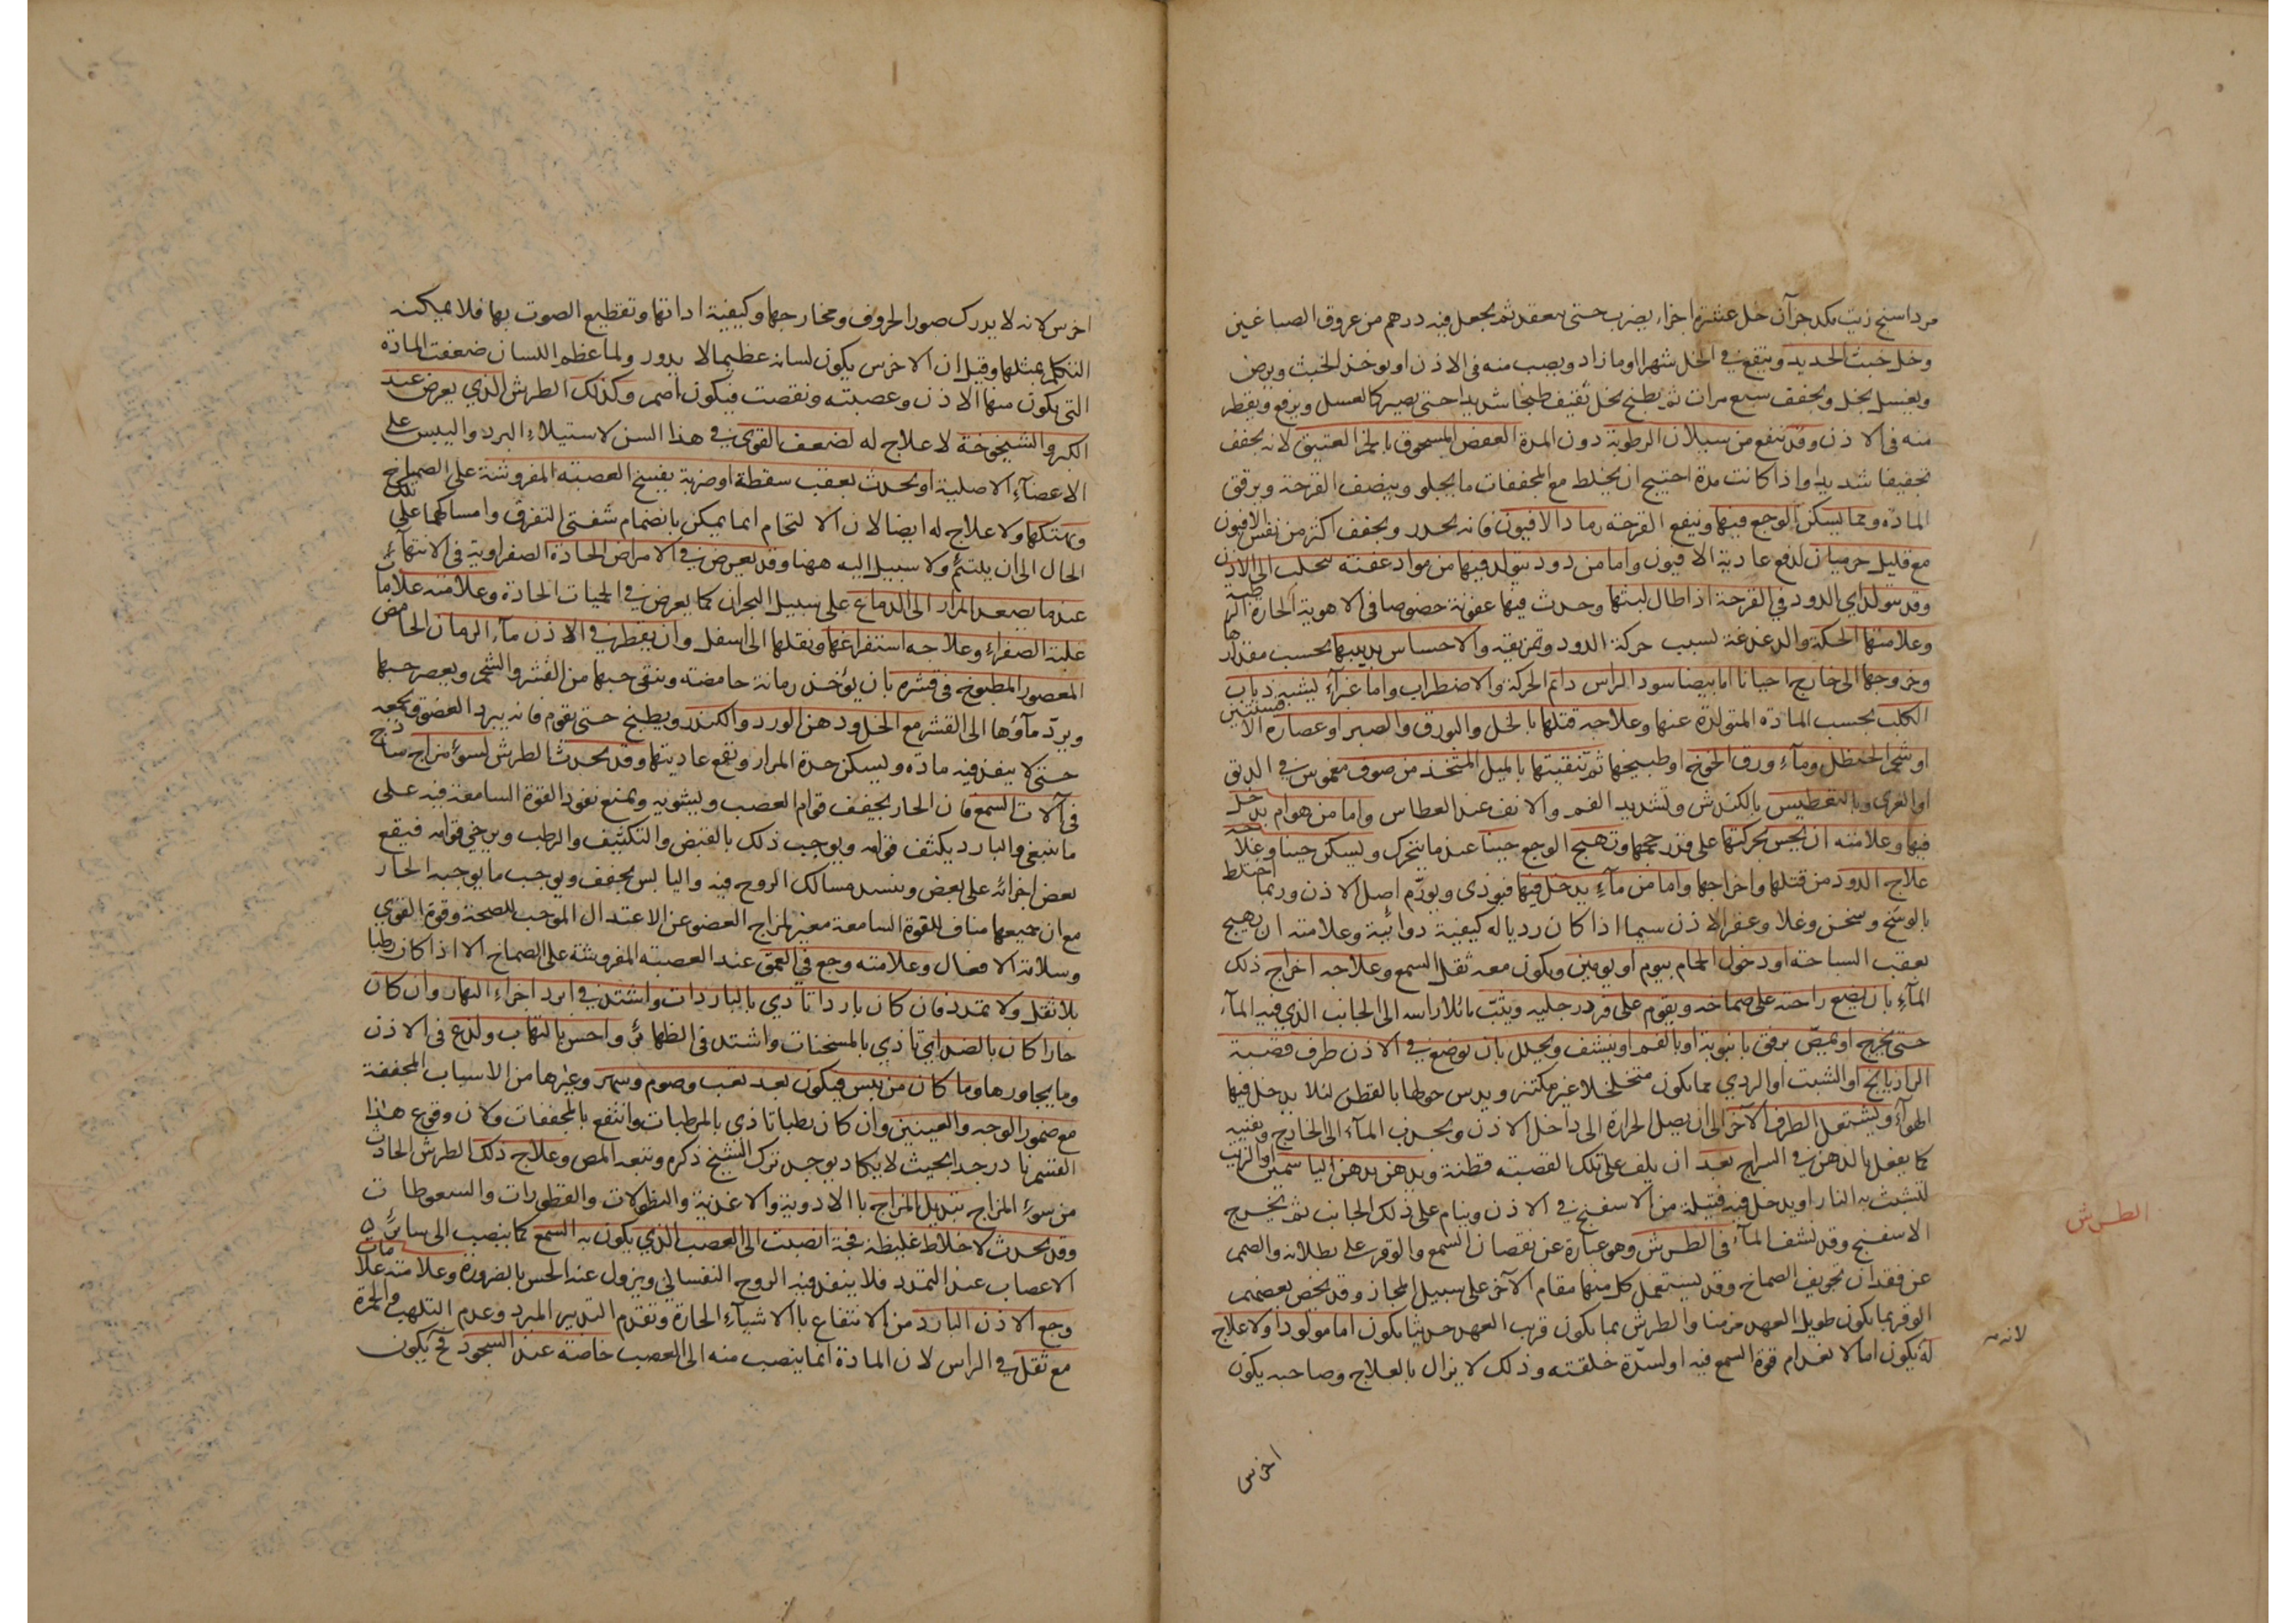 مرداسنج زيت بكد جزآن خل عشرة اجزاء يضرب حتى ينعقد ثم يجعل فيه درهم من عروق الصباغين
وخل خبث الحديد وينقع في الخل شهرا وما زاد ويصب منه فى الاذن او يوخذ الخبث ويرض
ويغسل بخل ويجفف سبع مرات ثم يطبخ بخل ثقيف طبخا شديدا حتى يصير كالعسل ويرفع ويقطر
منه فى الاذن وقد تنفع من سيلان الرطوبة دون المدة العفص المسحوق بالخمر العتيق لانه يجفف
تجفيفا شديدا واذا كانت مدة احتيج ان يخلط مع المجففات ما يجلو وينضف القرحة ويرقق
المادة ومما يسكن الوجع فيها وينفع القرحة رماد الافيون فانه يخدر ويجفف اكثر من نفس الافيون
مع قليل جرميان لدفع عادية الافيون واما من دود يتولد فيها من مواد عفنة تتحلب الى الاذن
وقد يتولد اى الدود في القرحة اذا طال لبثها وحدث فيها عفونة خصوصا فى الاهوية الحارة الرطبة
وعلامتها الحكة والدغدغة لسبب حركة الدود وتمزيقه والاحساس بدبيبها بحسب مقدارها
وخروجها الى خارج احيانا اما بيضا سود الراس دائم الحركة والاضطراب واما غبراء يشبه ذباب
الكلب بحسب المادة المتولدة عنها وعلاجه قتلها بالخل والبورق والصبر او عصارة الافسنتين
او شحم الحنظل وماء ورق الخوخ او طبيخها ثم تنقيتها بالميل المتخذ من صوف مغموس في الدبق
او الغرى وبالتعطيس بالكندش وتشديد الفم والانف عند العطاس واما من هوام يدخل
فيها وعلامته ان يحس بحركتها على قدر حجمها وتهيج الوجع حينا عند ما يتحرك ويسكن حينا وعلاجه
علاج الدود من قتلها واخراجها واما من مآء يدخل فيها فيوذى ويورّم اصل الاذن وربما اختلط
بالوسخ وسخن وغلا وعفر الاذن سيما اذا كان رديا له كيفية دوائية وعلامته ان يهيج
بعقب السباحة او دخول الحمام بيوم او يومين ويكون معه ثقل السمع وعلاجه اخراج ذلك
المآء بان يضع راحته على صماخه ويقوم على فرد رجليه ويثب مائلا راسه الى الجانب الذي فيه المآء
حتى يخرج او يمصّ برفق بانبوبة او بالفم او ينشف ويحلل بان توضع في الاذن طرف قصبة
الرازيانج او الشبت او البردي مما يكون متخلخلا غير مكتنز ويدس حولها بالقطن لئلا يدخل فيها
الهوآء ويشتعل الطرف الآخر الى ان يصل الحرارة الى داخل الاذن ويجذب المآء الى الخارج ويفنيه
كما يفعل بالدهن في السراج بعد ان يلف على تلك القصبة قطنة ويدهن بدهن الياسمين او الزيت
لتشبث به النار او يدخل فيه فتيلة من الاسفنج في الاذن وينام على ذلك الجانب ثم يخرج
الاسفنج وقد نشف المآء فى الطرش وهو عبارة عن نقصان السمع والوقر على بطلانه والصمم
عن فقدان تجويف الصماخ وقد يستعمل كل منها مقام الآخر على سبيل المجاز وقد يخص بعضهم
الوقر بما يكون طويل العهد مزمنا والطرش بما يكون قريب العهد حديثا يكون اما مولودا ولا علاج
له يكون اما لانعدام قوة السمع فيه او لسدّة خلقته وذلك لا يزال بالعلاج وصاحبه يكون
الطرش
لانه
اخرس
اخرس لانه لا يدرك صور الحروف ومخارجها وكيفية اداتها وتقطيع الصوت بها فلا يمكنه
التكلم بمثلها وقيل ان الاخرس يكون لسانه عظيما لا يدور ولما عظم اللسان ضعفت المادة
التى يكون منها الاذن وعصبته ونقصت فيكون اصم وكذلك الطرش الذي يعرض عند
الكبر والشيخوخة لا علاج له لضعف القوى في هذا السن لاستيلاء البرد واليبس على
الاعضآء الاصلية او يحدث بعقب سقطة او ضربة يفسخ العصبة المفروشة على الصماخ
وتهتكها ولا علاج له ايضا لان الالتحام انما يمكن بانضمام شفتى التفرق وامساكهما على تلك
الحال الى ان يلتئم ولا سبيل اليه ههنا وقد يعرض في الامراض الحادة الصفراوية فى الانتهآء
عند ما يصعد المرار الى الدماغ على سبيل البحران كما يعرض في الحميات الحادة وعلامته علامات
غلبة الصفراء وعلاجه استفراغها ونقلها الى اسفل وان يقطر في الاذن مآء الرمان الحامض
المعصور المطبوخ فى قشره بان يؤخذ رمانة حامضة وينقى حبها من القشر والشحم ويعصر حبها
ويردّ مآؤها الى القشر مع الخل ودهن الورد والكندر ويطبخ حتى يقوم فانه يبرد العضو ويجمعه
حتى لا ينفذ فيه مادة ويسكن حدة المرار ويقمع عاديتها وقد يحدث الطرش لسوء مزاج ساذج
فى آلات السمع فان الحار يجفف قوام العصب ويشويه ويمنع نفوذ القوة السامعة فيه على
ما ينبغي والبارد يكثف قوامه ويوجب ذلك بالقبض والتكثيف والرطب ويرخي قوامه فيقع
بعض اجزائه على بعض وينسد مسالك الروح فيه واليابس يجفف ويوجب ما يوجبه الحار
مع ان جميعها مناف للقوة السامعة مغير لمزاج العضو عن الاعتدال الموجب للصحة وقوة القوى
وسلامة الافعال وعلامته وجع في العمق عند العصبة المفروشة على الصماخ الا اذا كان رطبا
بلا ثقل ولا تمدد فان كان باردا تأدي بالباردات واشتد في ابرد اجزاء النهار وان كان
حارا كان بالضد اي تأدي بالمسخنات واشتد فى الظهائر واحس بالتهاب ولذع فى الاذن
وما يجاورها وما كان من يبس فيكون بعد تعب وصوم وسهر وغيرها من الاسباب المجففة
مع ضمور الوجه والعينين وان كان رطبا تاذى بالمرطبات وانتفع بالمجففات ولان وقوع هذا
القسم نادر جدا بحيث لا يكاد يوجد ترك الشيخ ذكره وتبعه المص وعلاج ذلك الطرش الحادث
من سوء المزاج تبديل المزاج باالادوية والاغذية والنطولات والقطورات والسعوطات
وقد يحدث لاخلاط غليظة فجة انصبت الى العصب الذي يكون به السمع كما ينصب الى سائر
الاعصاب عند التمدد فلا ينفذ فيه الروح النفساني ويزول عنه الحس بالضرورة وعلامته علامات
وجع الاذن البارد من الانتفاع باالاشيآء الحارة وتقدم التدبير المبرد وعدم التلهب والحمرة
مع ثقل في الراس لان المادة انما ينصب منه الى العصب خاصة عند السجود فح يكون